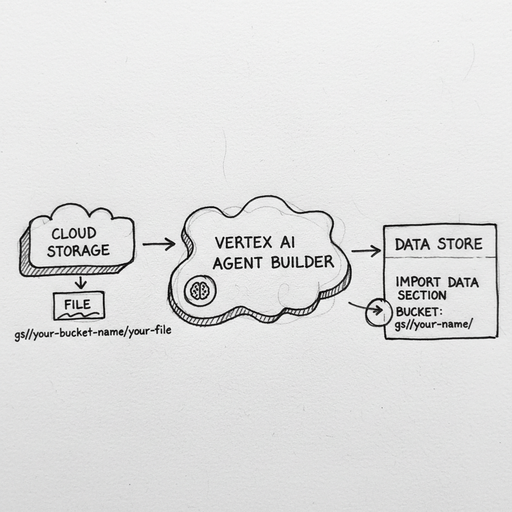 CLOUD
STORAGE
FILE
gs//your-bucket-name/your-file
VERTEX AI
AGENT BUILDER
DATA STORE
IMPORT DATA
SECTION
BUCKET:
gs//your-name/